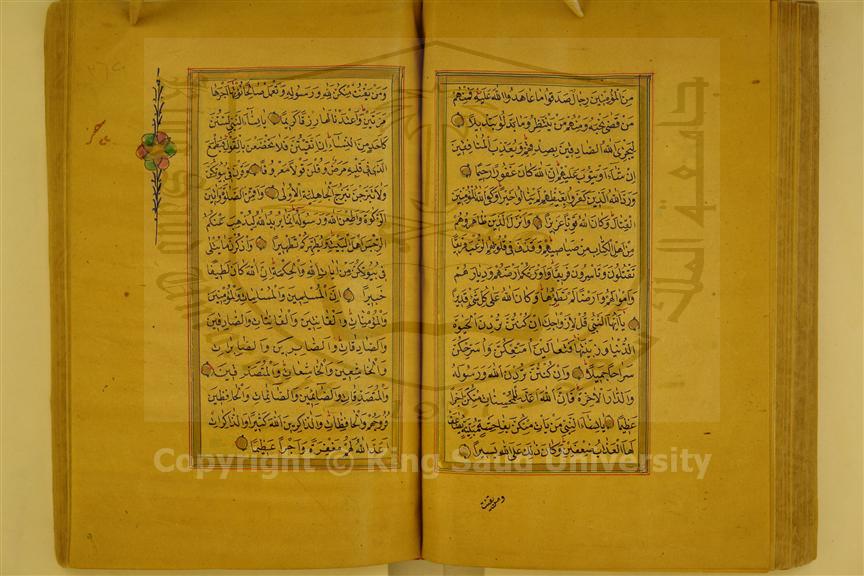 من المؤمنين رجال صدقوا ما عاهدوا الله عليه فمنهم
من قضى نحبه ومنهم من ينتظر وما بدلوا تبديلا
ليجزي الله الصادقين بصدقهم ويعذب المنافقين
ان شاء او يتوب عليهم ان الله كان غفورا رحيما
ورد الله الذين كفروا بغيظهم لم ينالوا خيرا وكفى الله المؤمنين
القتال وكان الله قويا عزيزا وانزل الذين ظاهروهم
من اهل الكتاب من صياصيهم وقذف في قلوبهم الرعب فريقا
تقتلون وتاسرون فريقا واورثكم ارضهم وديارهم
واموالهم وارضا لم تطؤها وكان الله على كل شئ قديرا
يا ايها النبي قل لازواجك ان كنتن تردن الحيوة
الدنيا وزينتها فتعالين امتعكن واسرحكن
سراحا جميلا وان كنتن تردن الله ورسوله
والدار الاخرة فان الله اعد للمحسنات منكن اجرا
عظيما يا نساء النبي من يات منكن بفاحشة مبينة يضاعف
لها العذاب ضعفين وكان ذلك على الله يسيرا
ومن يقنت
ومن يقنت منكن لله ورسوله وتعمل صالحا نؤتها اجرها
مرتين واعتدنا لها رزقا كريما يا نساء النبي لستن
كاحد من النساء ان اتقيتن فلا تخضعن بالقول فيطمع
الذي في قلبه مرض وقلن قولا معروفا وقرن في بيوتكن
ولا تبرجن تبرج الجاهلية الاولى واقمن الصلوة واتين
الزكوة واطعن الله ورسوله انما يريد الله ليذهب عنكم
الرجس اهل البيت ويطهركم تطهيرا واذكرن ما يتلى
في بيوتكن من ايات الله والحكمة ان الله كان لطيفا
خبيرا ان المسلمين والمسلمات والمؤمنين
والمؤمنات والقانتين والقانتات والصادقين
والصادقات والصابرين والصابرات
والخاشعين والخاشعات والمتصدقين
والمتصدقات والصائمين والصائمات والحافظين
فروجهم والحافظات والذاكرين الله كثيرا والذاكرات
اعد الله لهم مغفرة واجرا عظيما
Copyright © King Saud University